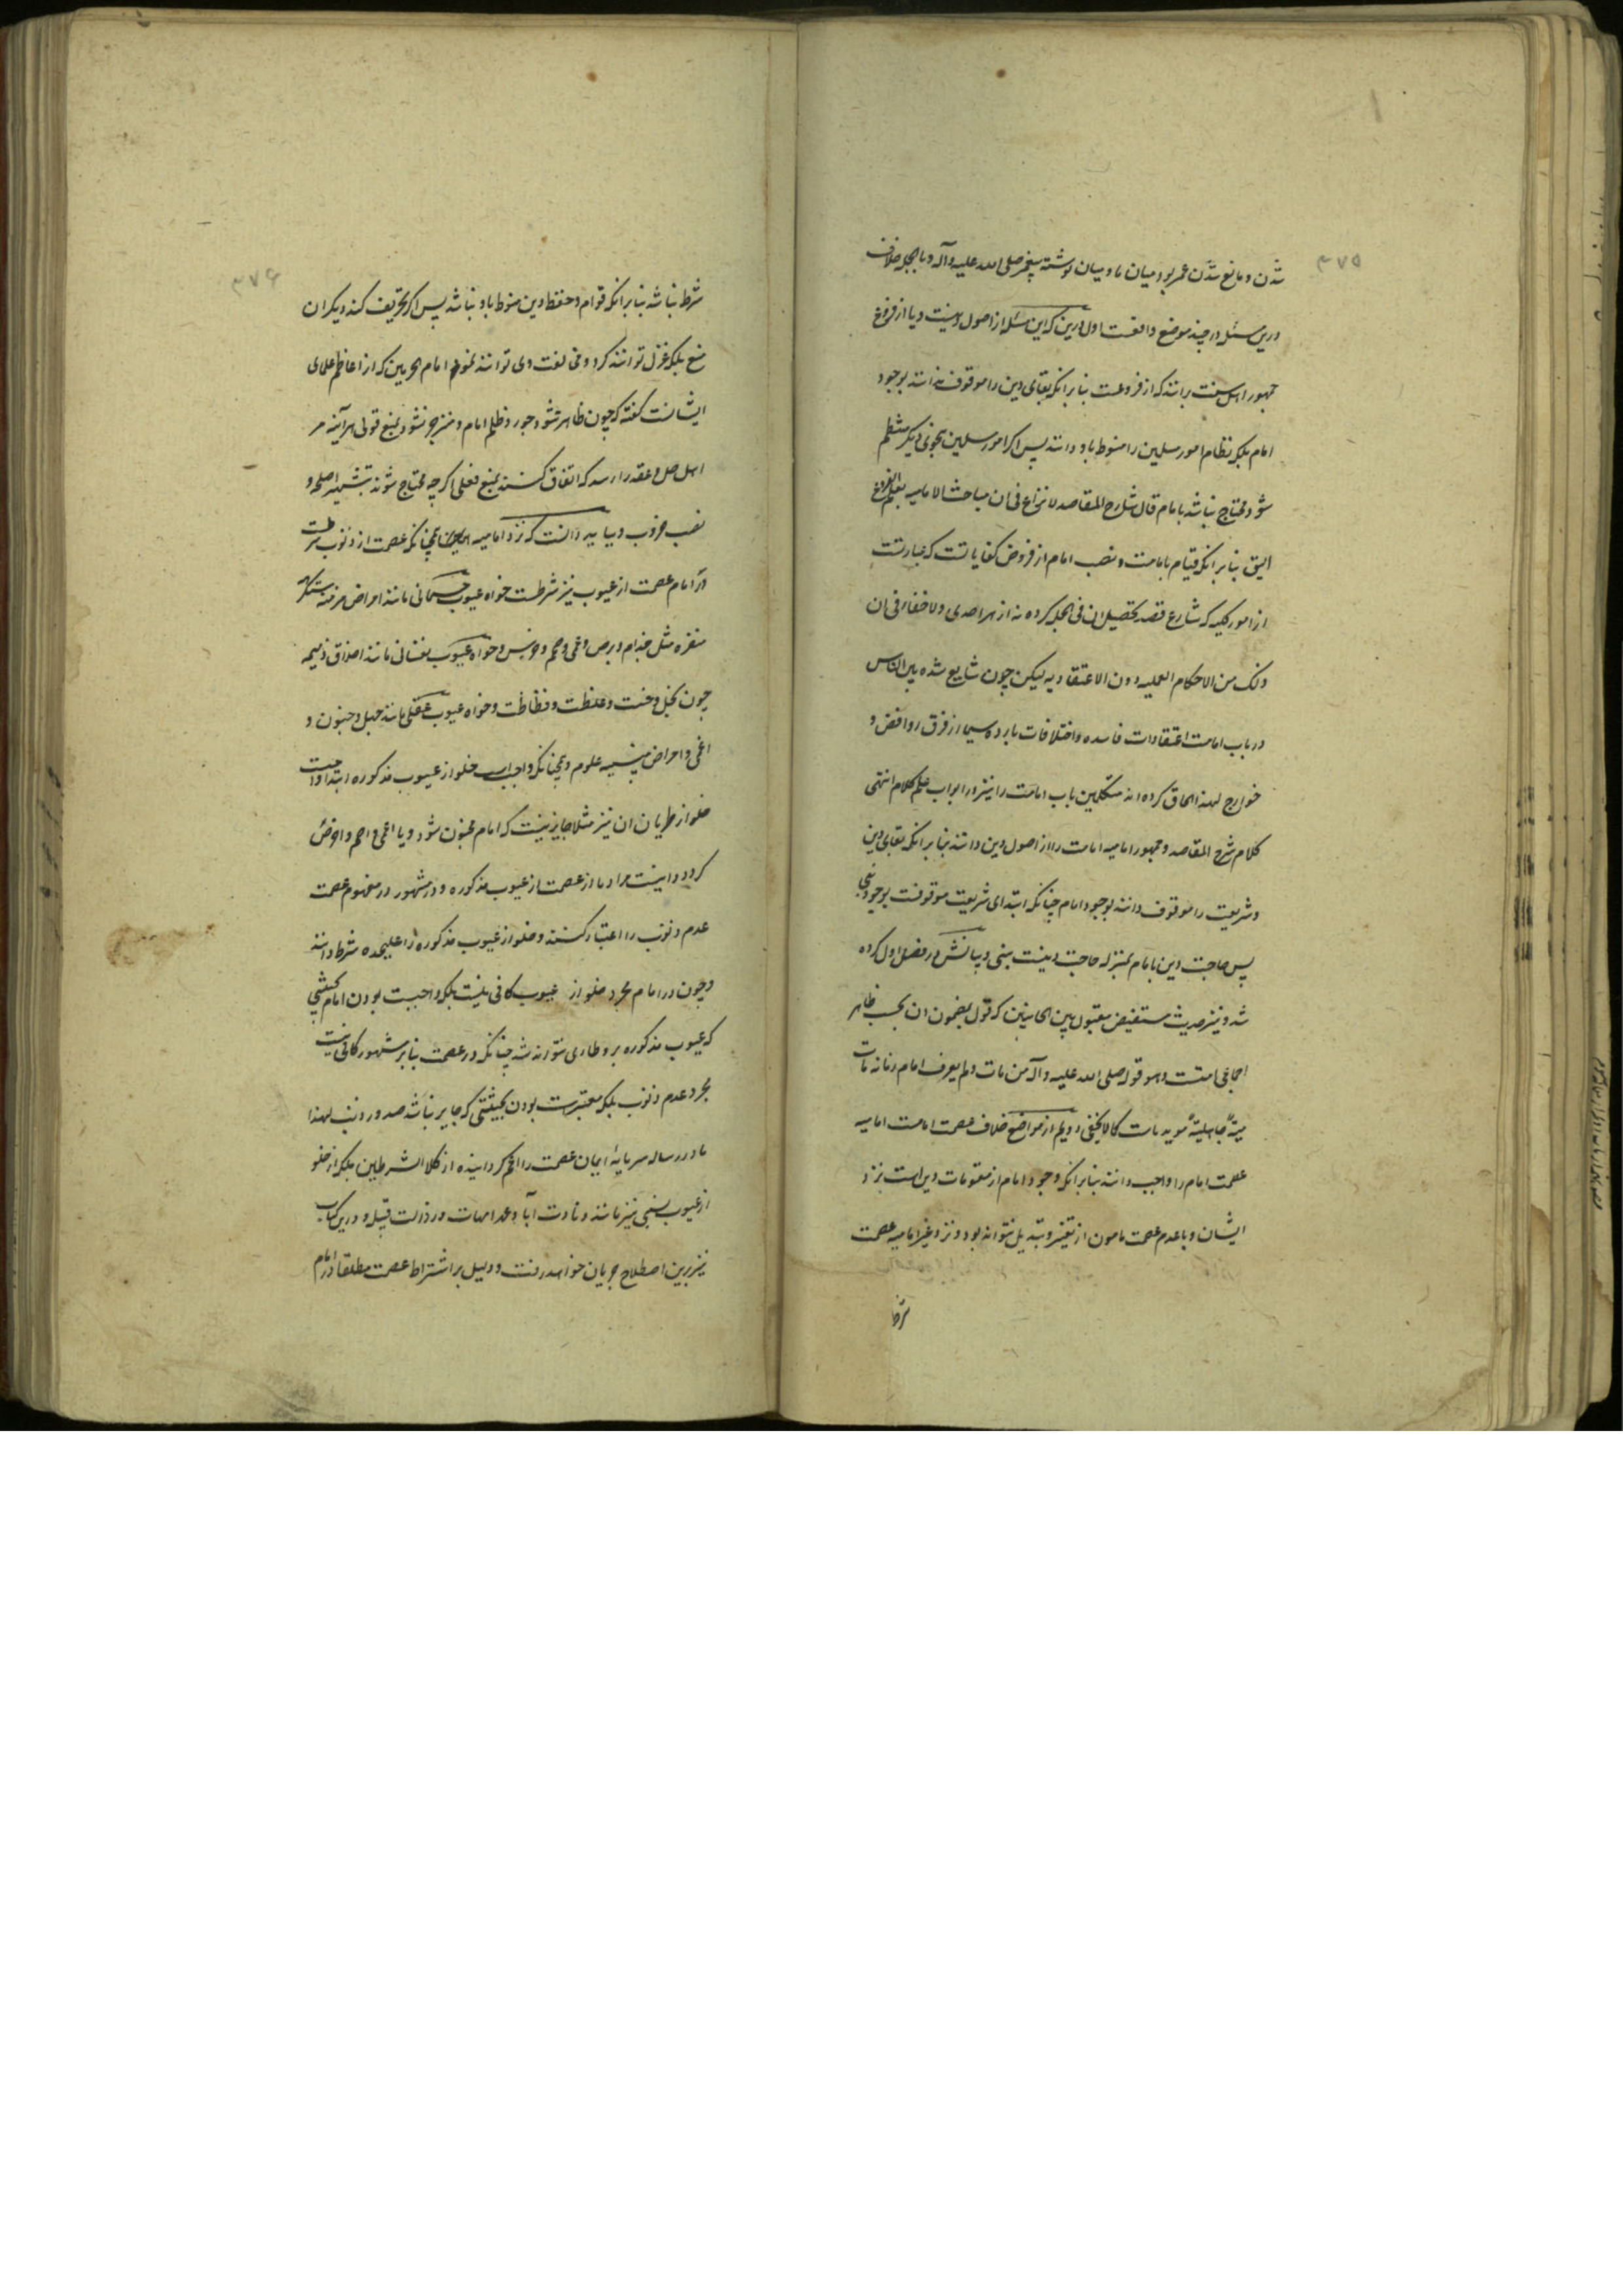 ۳۷۵
شدن و مانع شدن عمر بود میان ما و میان نوشته پیغمبر صلی الله علیه و آله و بالجمله خلاف
درین مسئله در چند موضع واقعست اول درین که این مسئله از اصول دینست و یا از فروع
جمهور اهل سنت برانند که از فروعست بنا بر انکه بقای دین را موقوف ندانند بوجود
امام بلکه نظام امور مسلمین را منوط باو دانند پس اگر امور مسلمین بنحوی دیگر منتظم
شود محتاج نباشد بامام قال شارح المقاصد لا نزاع فی ان مباحث الامامیه بعلم الفروع
الیق بنا بر انکه قیام بامامت و نصب امام از فروض کفایاتست که عبارتست
از امور کلیه که شارع قصد تحصیل ان فی الجمله کرده نه از هر احدی و لا خفاء فی ان
ذلک من الاحکام العملیه دون الاعتقادیه لیکن چون شایع شده بین الناس
در باب امامت اعتقادات فاسده و اختلافات بارده سیما از فرق روافض و
خوارج لهذا الحاق کرده اند متکلمین باب امامت را نیز در ابواب علم کلام انتهی
کلام شرح المقاصد و جمهور امامیه امامت را از اصول دین دانند بنا بر انکه بقای دین
و شریعت را موقوف دانند بوجود امام چنانکه ابتدای شریعت موقوفست بوجود نبی
پس حاجت دین بامام بمنزله حاجت دینست بنبی و بیانش در فصل اول کرده
شد و نیز حدیث مستفیض مقبول بین الجانبین که قول بمضمون ان بحسب ظاهر
اجماعی امتست و هو قوله صلی الله علیه و آله من مات و لم یعرف امام زمانه مات
میتة جاهلیة موید ماست کما لا یخفی و دویم از مواضع خلاف عصمت امامست امامیه
عصمت امام را واجب دانند بنا بر انکه وجود امام از مقومات دین است نزد
ایشان و با عدم عصمت مامون از تغییر و تبدیل نتواند بود و نزد غیر امامیه عصمت
شرط
۳۷۶
شرط نباشد بنا بر انکه قوام و حفظ دین منوط باو نباشد پس اگر تحریف کند دیگران
منع بلکه عزل توانند کرد و مخالفت وی توانند نمود امام الحرمین که از اعاظم علمای
ایشانست گفته که چون ظاهر شود جور و ظلم امام و منزجر نشود بمنع قولی هر آینه مر
اهل حل و عقد را رسد که اتفاق کنند بمنع فعلی اگر چه محتاج شوند بتشهیر اسلحه و
نصب حروب و بباید دانست که نزد امامیه همچنانکه عصمت از ذنوب شرطست
در امام عصمت از عیوب نیز شرطست خواه عیوب جسمانی مانند امراض مزمنه مستنکره
منفره مثل جذام و برص و عمی و صمم و خرس و خواه عیوب نفسانی مانند اخلاق ذمیمه
چون بخل و خست و غلظت و فظاظت و خواه عیوب عقلی مانند جهل و جنون و
اغمی و امراض منسیه علوم و همچنانکه واجب است خلو از عیوب مذکوره ابتدا واجبست
خلو از طریان ان نیز مثلا جایز نیست که امام مجنون شود و یا اعمی و اصم و اخرس
گردد و اینست مراد ما از عصمت از عیوب مذکوره و در مشهور در مفهوم عصمت
عدم ذنوب را اعتبار کنند و خلو از عیوب مذکوره را علیحده شرط دانند
و چون در امام مجرد خلو از عیوب کافی نیست بلکه واجبست بودن امام بحیثیتی
که عیوب مذکوره بر و طاری نتواند شد چنانکه در عصمت بنا بر مشهور کافی نیست
مجرد عدم ذنوب بلکه معتبرست بودن بحیثیتی که جایز نباشد صدور ذنب لهذا
ما در رساله سرمایه ایمان عصمت را اعم گردانیده از کلا الشرطین بلکه از خلو
از عیوب نسبی نیز مانند دنائت آبا و عهر امهات و رذالت قبیله و درین کتاب
نیز برین اصطلاح جریان خواهد رفت و دلیل بر اشتراط عصمت مطلقا در امام